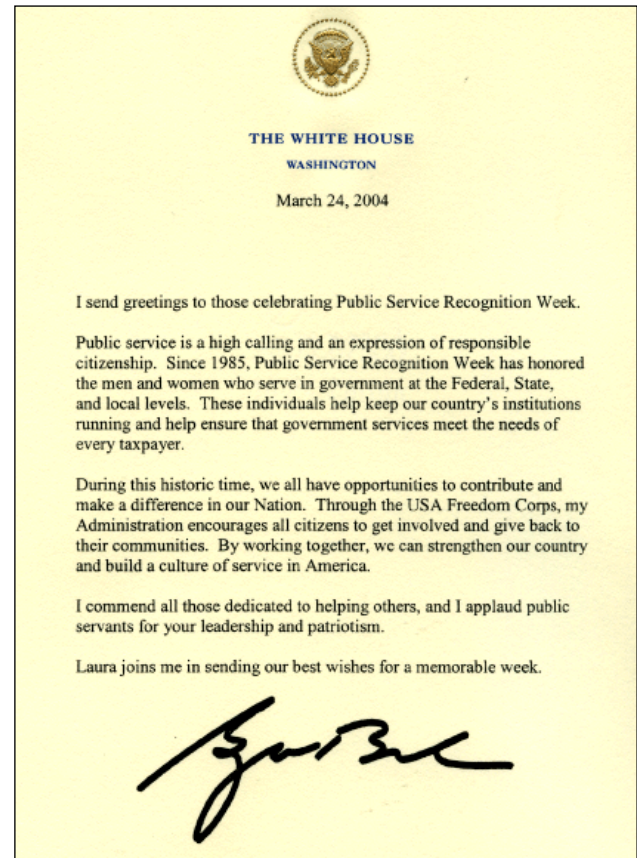 THE WHITE HOUSE
WASHINGTON
March 24, 2004
I send greetings to those celebrating Public Service Recognition Week.
Public service is a high calling and an expression of responsible
citizenship. Since 1985, Public Service Recognition Week has honored
the men and women who serve in government at the Federal, State,
and local levels. These individuals help keep our country's institutions
running and help ensure that government services meet the needs of
every taxpayer.
During this historic time, we all have opportunities to contribute and
make a difference in our Nation. Through the USA Freedom Corps, my
Administration encourages all citizens to get involved and give back to
their communities. By working together, we can strengthen our country
and build a culture of service in America.
I commend all those dedicated to helping others, and I applaud public
servants for your leadership and patriotism.
Laura joins me in sending our best wishes for a memorable week.